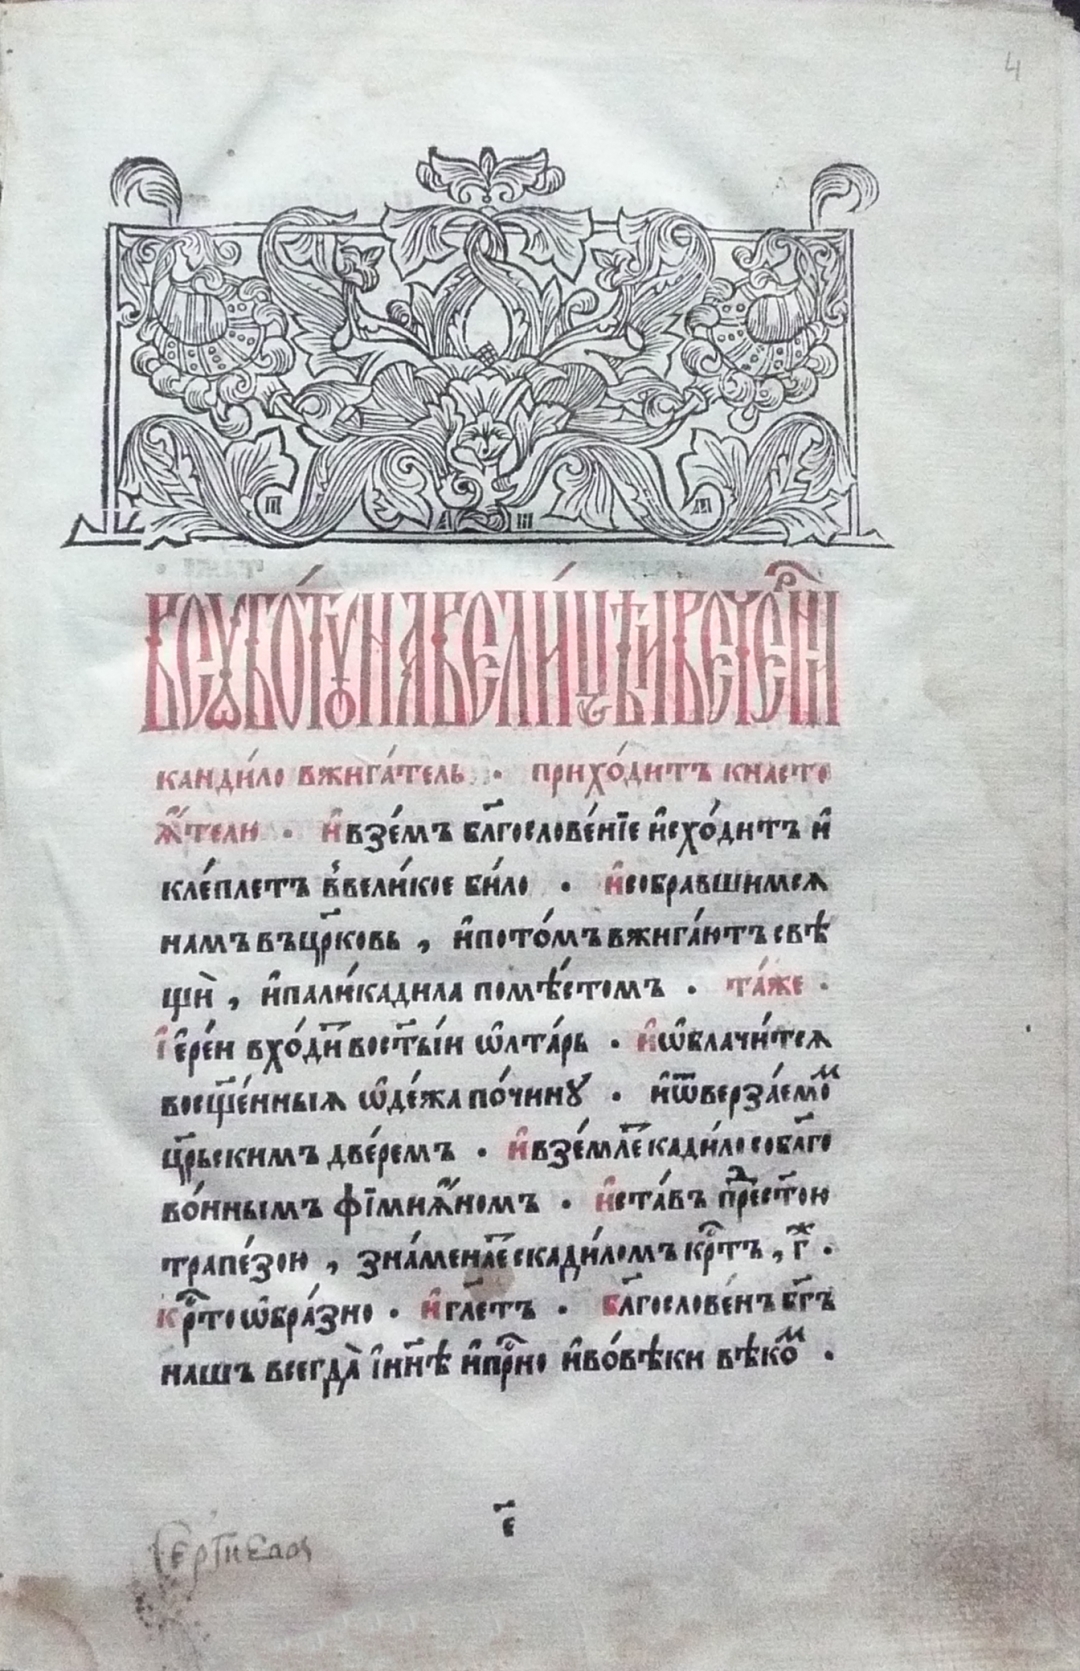 4
П М
А Ш
В СꙊББО́ТꙊ НА ВЕЛИ́ЦѢЙ ВЕЧЕ́РНИ
кандило вжига́тель . прихо́дитъ кнасто
ѧ҆́телю . и҆ взе́мъ бл҃гослове́нїе и҆схо́дитъ и҆
кле́плетъ в вели́кое би́ло . и҆ собравшимсѧ
намъ въ цр҃ковь , и҆ пото́мъ вжига́ютъ свѣ
щи̇̀ , и҆ пали́кадила по мѣ́стомъ . та́же .
і҆ере́и вхо́дит во ст҃ы́и ѻ҆лта́рь . и҆ ѡ҆блачи́тсѧ
во сщ҃е́нныѧ ѻ҆де́жа по́чинꙋ . и҆ ѿверза́емом
цр҃ьскимъ две́ремъ . и҆ взе́млет кади́ло со бл҃го
во́ннымъ фїмиѧ́номъ . и҆ ста́въ пред ст҃ою
трапе́зою , зна́менает с кади́ломъ крⷭ҇тъ , г҃ж .
крⷭ҇тоѡ҆бра́зно . и҆ гл҃етъ . бл҃гослове́нъ бг҃ъ
нашъ всегда̀ і҆ нн҃ѣ и҆ прⷭ҇но и҆ во́вѣки вѣком .
е҃